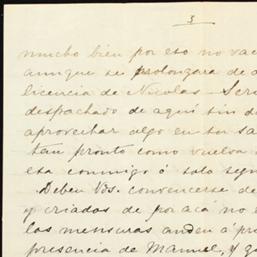 3
mucho bien por eso no vac
aunque se prolongara de a
licencia de Nicolas - Ser
despachado de aquí sin d
aprovechar algo en su sa
tan pronto como vuelva
esta conmigo ó solo seg
Deben Vds. convencerse de
y criados de por acá no e
las mensuras anden á pri
presencia de Manuel, y q